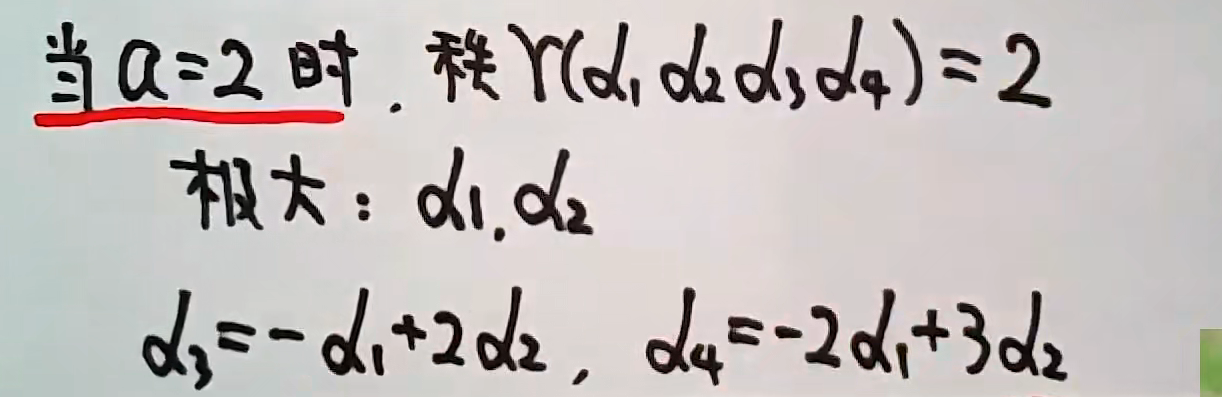 当 a=2 时. 秩 r(α₁ α₂ α₃ α₄)=2
极大: α₁, α₂
α₃=-α₁+2α₂, α₄=-2α₁+3α₂